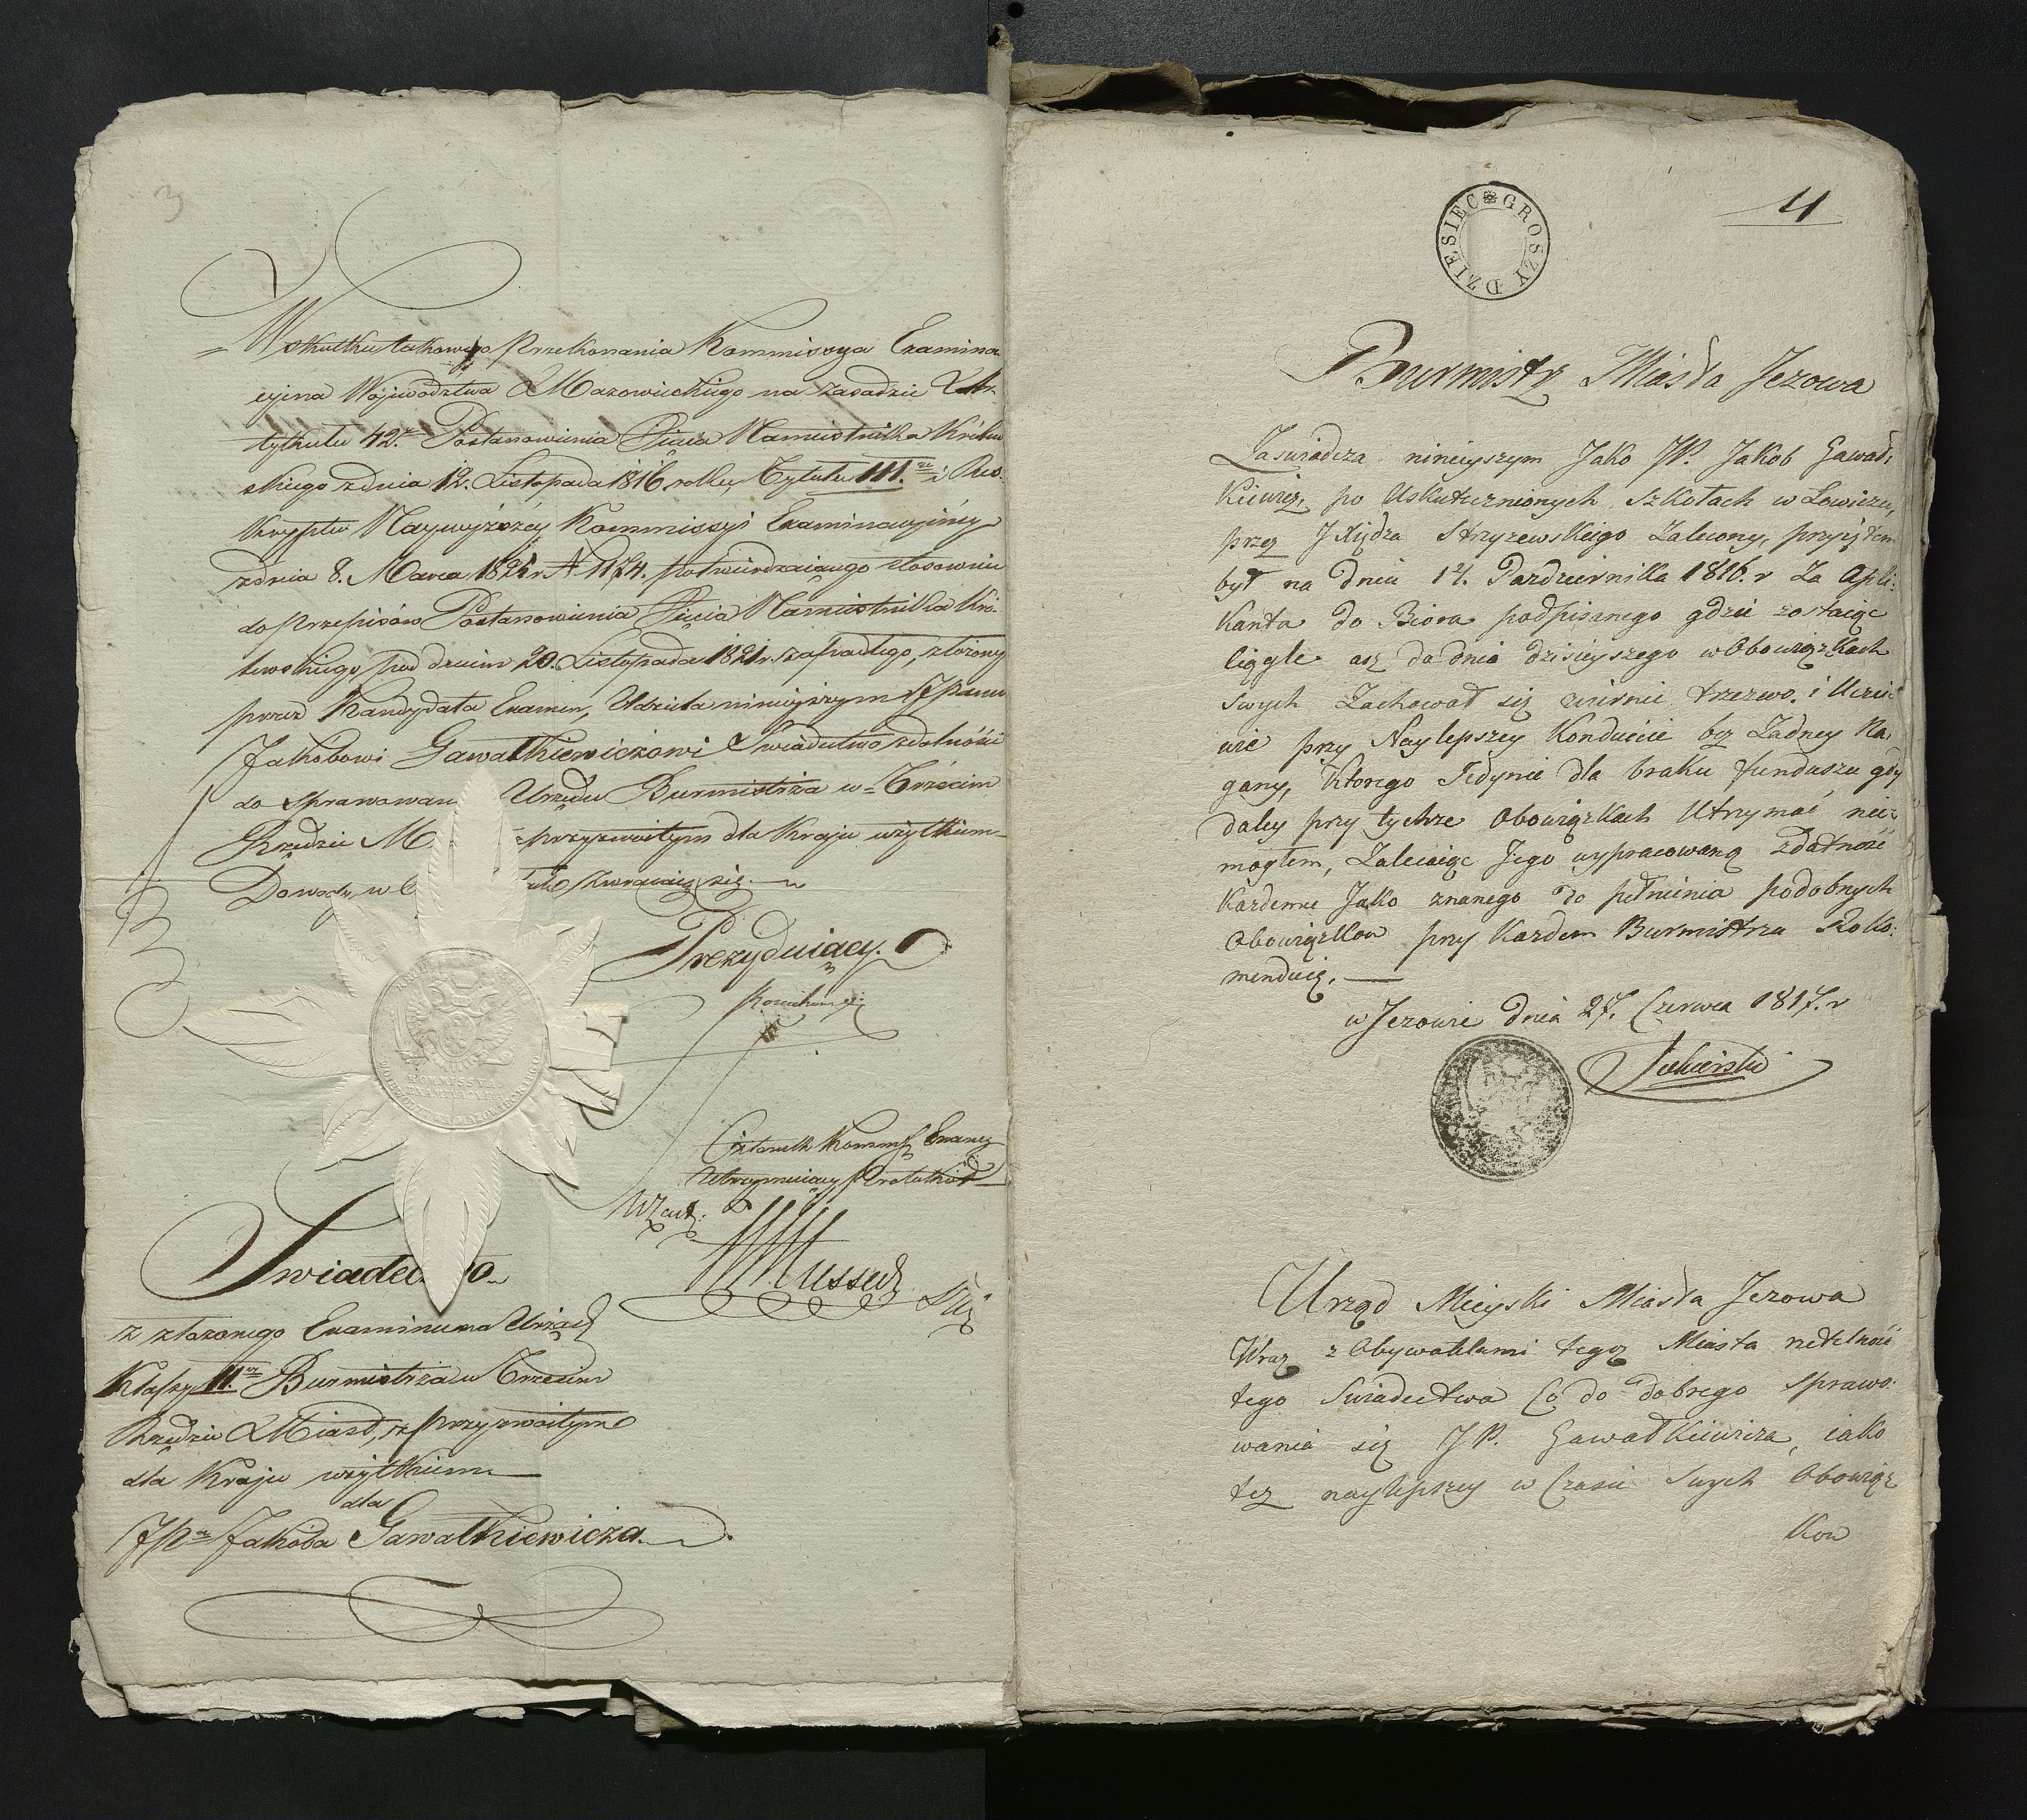 3
W skutku takowego przekonania Kommissya Examina
cyina Województwa Mazowieckiego na zasadzie Ar-
tykułu 42.º Postanowienia Xięcia Namiestnika Królew
skiego z dnia 12. Listopada 1816 roku, Tytułu III.go i Res-
kryptu Naywyższey Kommissyi Examinacyiney
z dnia 8. Marca 1825 r. N 1174. potwierdzaiącego stosownie
do przepisów Postanowienia Xięcia Namiestnika Kró-
lewskiego pod dniem 20. Listopada 1821 r. zapadłego, złożony
przez Kandydata Examen, Udziela ninieyszym JPanu
Jakóbowi Gawałkiewiczowi Swiadectwo zdatności
do sprawowan Urzędu Burmistrza w Trzecim
Rzędzie M przyzwoitym dla Kraju użytkiem
Dowody w zwracaią się.
Prezyduiący.
Członek Kommis. Examcy
Utrzymuiący Protokół
Mussed
Swiadec o
z złożonego Examinu na Urząd
Klassy II.ey Burmistrza w Trzecim
Rzędzie Miast, z przyzwoitym
dla Kraju użytkiem
dla
JPa Jakóba Gawałkiewicza.
DZIESIEC GROSZY
4
Burmistrz Miasta Jezowa
Zaswiadcza ninieyszym Jako JP. Jakob Gawał-
kiewicz, po Uskutecznionych Szkołach w Łowiczu,
przez JXiędza Stryzewskiego Zalecony, przyiętem
był na dniu 12. Pazdziernika 1816. r Za Apli-
kanta do Biora podpisanego gdzie zostaiąc
ciągle asz do dnia dzisieyszego w Obowiązkach
Swych Zachował się wiernie trzezwo. i Uczci
wie przy Naylepszey Konduicie bez Zadney Na-
gany, Ktorego Jedynie dla braku funduszu gdy
daley przy tychze Obowiązkach Utrzymać nie-
mogłem, Zalecaiąc Jego wypracowaną Zdatność
Kazdemu Jako znanego do pełnienia podobnych
Obowiązkow przy Kazdem Burmistrzu Reko-
menduię.
w Jezowie dnia 27. Czerwca 1817. r
Urząd Mieyski Miasta Jezowa
Wraz z Obywatelami tegoz Miasta rzetelność
tego Swiadectwa Co do dobrego Sprawo-
wania się JP. Gawałkiewicza, iako
tez naylepszey w Czasie Swych Obowiąz
kow